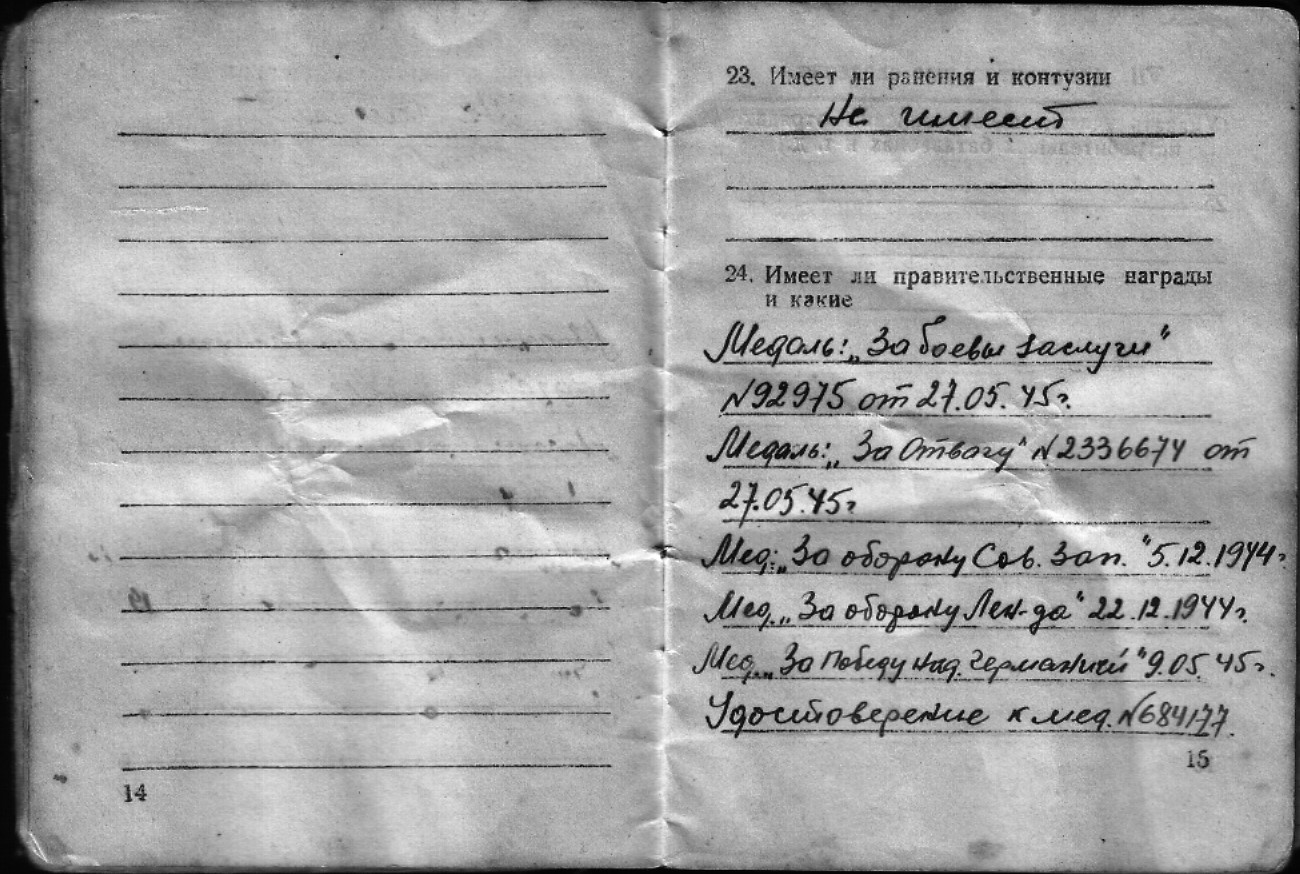 14
23. Имеет ли ранения и контузии
Не имеет
24. Имеет ли правительственные награды
и какие
Медаль: „За боевы заслуги"
№92975 от 27.05.45г.
Медаль: „За Отвагу" №2336674 от
27.05.45г
Мед: „За оборону Сов. Зап." 5.12.1944г
Мед. „За оборону Лен-да" 22.12.1944г.
Мед. „За Победу над Германией" 9.05.45г.
Удостоверение к мед. №684177
15